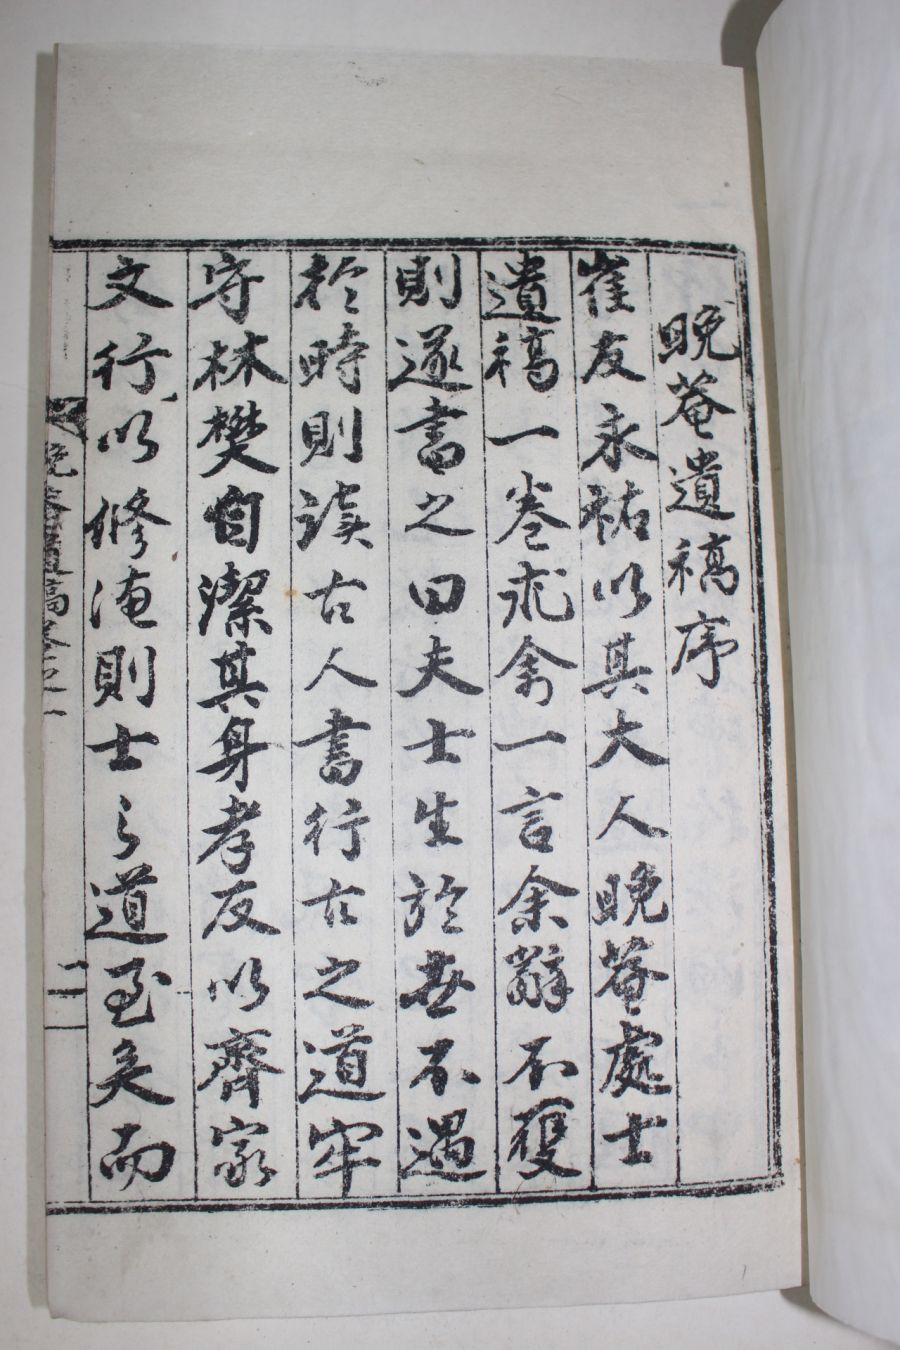 晩菴遺稿序
崔友永祐以其大人晩菴處士
遺稿一卷求余一言余辭不獲
則遂書之曰夫士生於世不遇
於時則讀古人書行古之道牢
守林樊自潔其身孝友以齊家
文行以修淹則士之道至矣而
晩菴遺稿卷之一
二